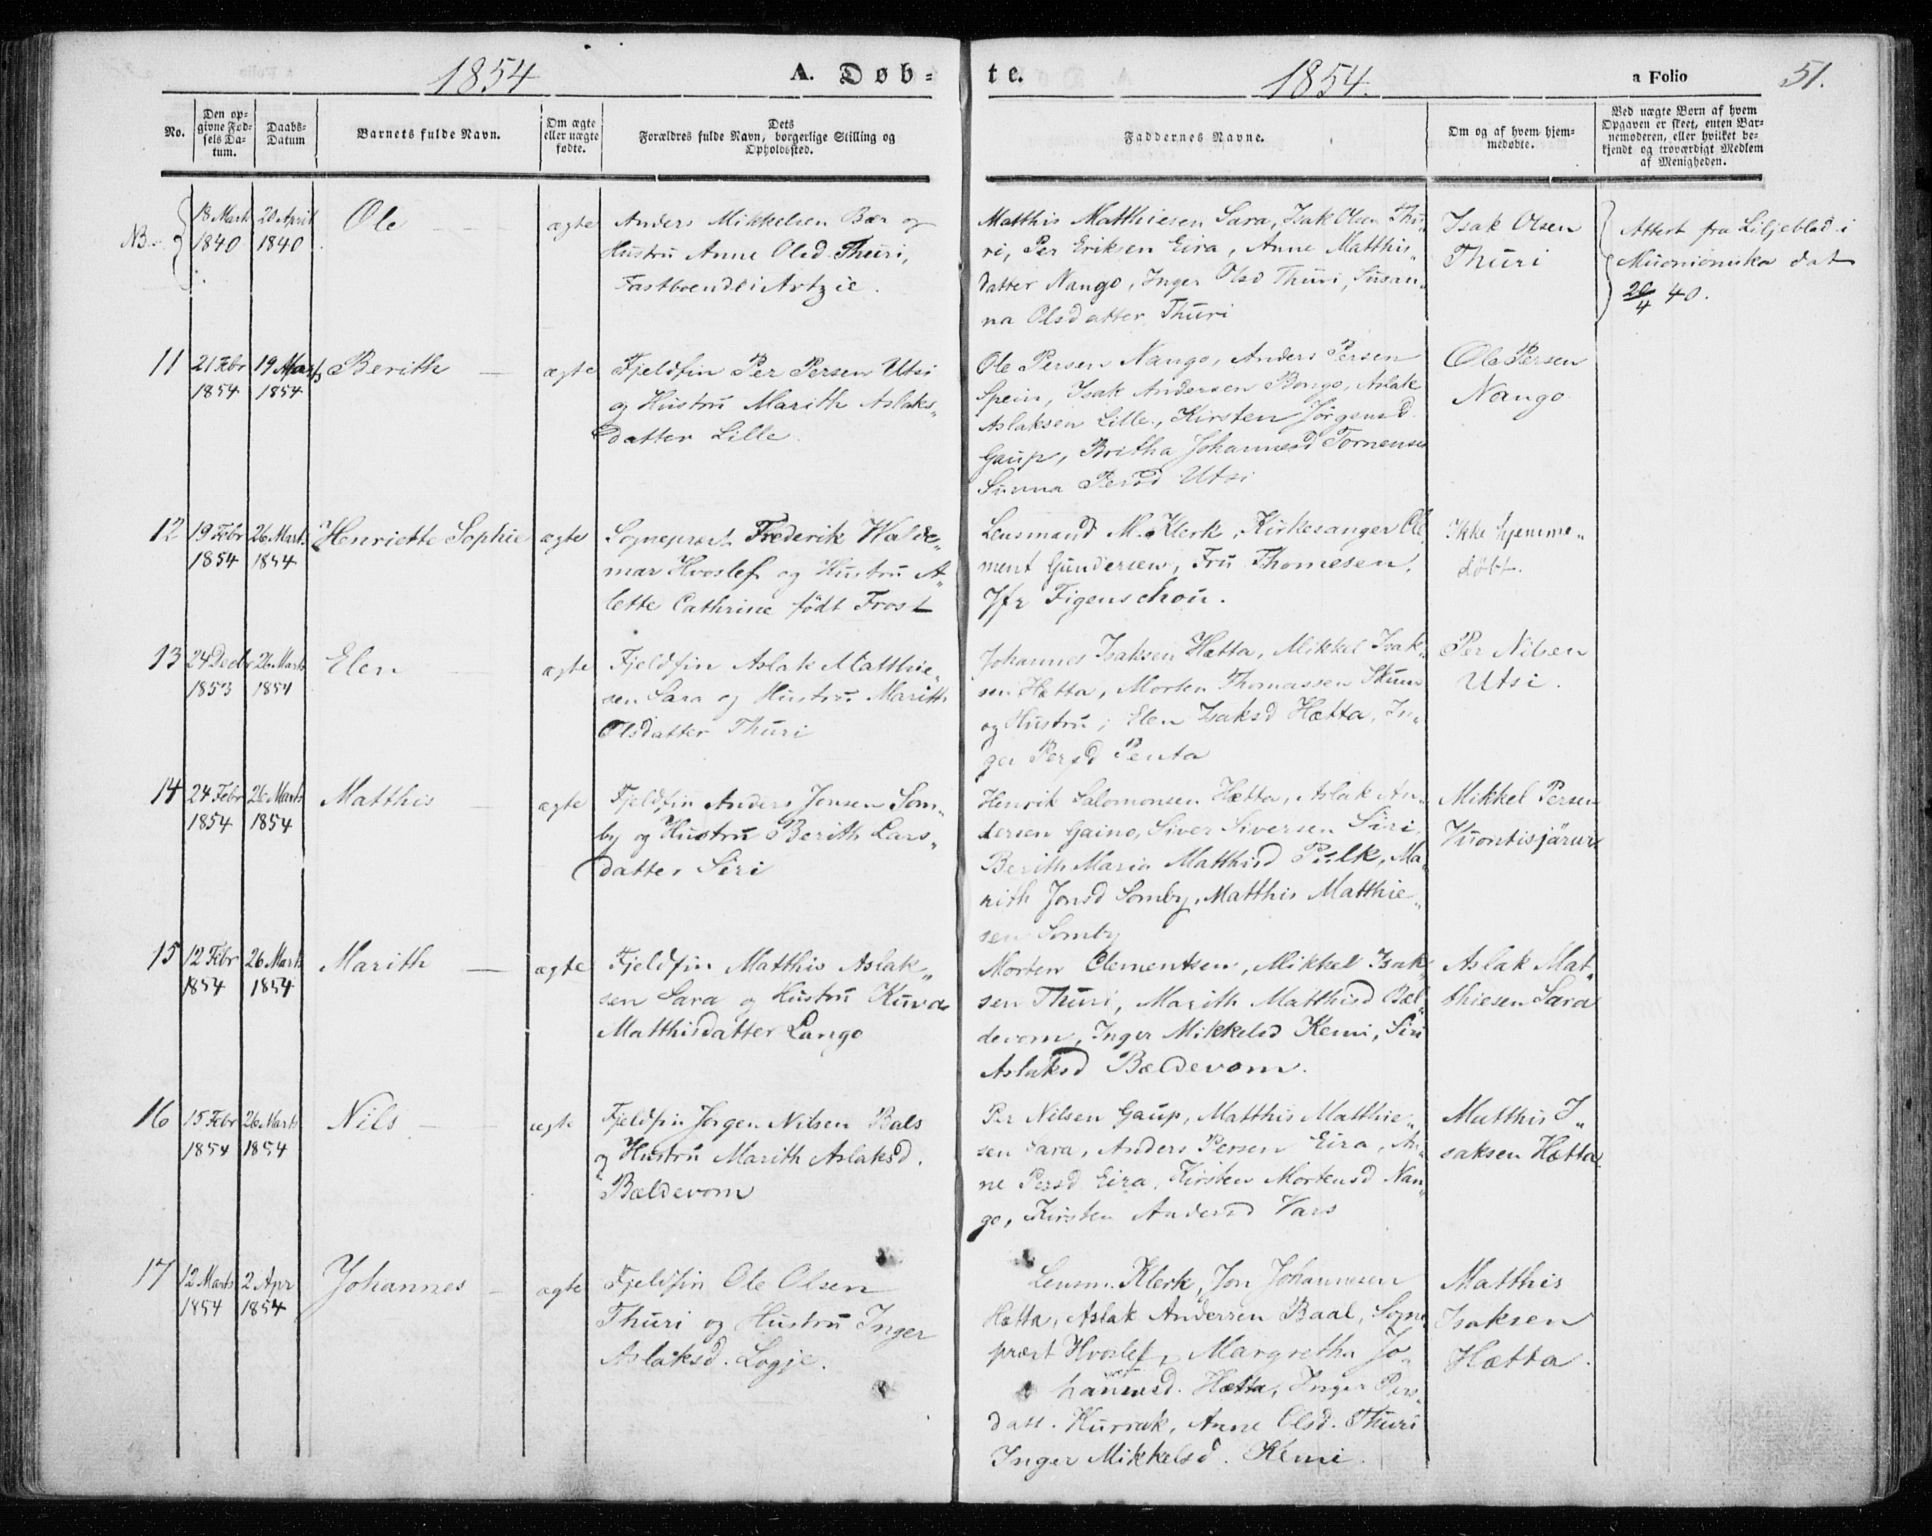 1854 A. Døb-
te. 1854. a Folio 51.
No. Den op-givne Fød-sels Da-tum. Daabs-Datum Barnets fulde Navn. Om ægte eller uægte fødte. Dets Forældres fulde Navn, borgerlige Stilling og Opholdssted.
Faddernes Navne. Om og af hvem hjem-medøbte. Ved uægte Børn af hvem Opgaven er skeet, enten Bar-nemoderen, eller hvilket be-kjendt og troværdigt Medlem af Menigheden.
NB. 18 Marts 20 April Ole ægte Anders Mikkelsen Bær og
1840 1840 Hustru Anne Olsd. Thuri,
Fastboende i Avtzie.
Matthis Matthiesen Sara, Isak Olsen Thu-
ri, Per Eriksen Eira, Anne Matthis-
datter Nango, Inger Olsd Thuri, Susan-
na Olsdatter Thuri
Isak Olsen
Thuri
Attest fra Liljeblad i
Muonioniska dat
20/4 40.
11 21 Febr 19 Marts Berith ægte Fjeldfin Per Persen Utsi
1854 1854 og Hustru Marith Aslaks-
datter Lille.
Ole Persen Nango, Anders Persen
Spein, Isak Andersen Bongo, Aslak
Aslaksen Lille, Kirsten Jørgensd.
Gaup, Britha Johannesd Tornensis
Sunna Persd Utsi
Ole Persen
Nango
12 19 Febr 26 Marts Henriette Sophie ægte Sogneprest Frederik Walde-
1854 1854 mar Hvoslef og Hustru A-
lette Cathrine født Frost
Lensmand M. Klerk, Kirkesanger Cle
ment Gundersen, Fru Thomesen,
Jfr Figenschou.
Ikke hjemme-
døbt.
13 24 Decbr 26 Marts Elen ægte Fjeldfin Aslak Matthie-
1853 1854 sen Sara og Hustru Marith
Olsdatter Thuri
Johannes Isaksen Hætta, Mikkel Isak-
sen Hætta, Morten Thomassen Skum
og Hustru, Elen Isaksd Hætta, In-
ger Persd Penta
Per Nilsen
Utsi.
14 24 Febr 26 Marts Matthis ægte Fjeldfin Anders Jonsen Som-
1854 1854 by og Hustru Berith Lars-
datter Siri
Henrik Salomonsen Hætta, Aslak An-
dersen Gaino, Siver Siversen Siri,
Berith Maria Matthisd Pulk, Ma-
rith Jonsd Somby, Matthis Matthie-
sen Somby
Mikkel Persen
Vuontisjärvi
15 12 Febr 26 Marts Marith ægte Fjeldfin Matthis Aslak-
1854 1854 sen Sara og Hustru Kuva
Matthisdatter Lango
Morten Clementsen, Mikkel Isak-
sen Thuri, Marith Matthisd Bæl-
devom, Inger Mikkelsd Kemi, Siri
Aslaksd Bældevom.
Aslak Mat-
thiesen Sara
16 15 Febr 26 Marts Nils ægte Fjeldfin Jørgen Nilsen Bals
1854 1854 og Hustru Marith Aslaksd.
Bældevom
Per Nilsen Gaup, Matthis Matthie-
sen Sara, Anders Persen Eira, An-
ne Persd Eira, Kirsten Mortensd Nan-
go, Kirsten Andersd Vars
Matthis I-
saksen Hætta
17 12 Marts 2 Apr Johannes ægte Fjeldfin Ole Olsen
1854 1854 Thuri og Hustru Inger
Aslaksd. Logje.
Lensm. Klerk, Jon Johannesen
Hætta, Aslak Andersen Baal, Sogne
prest Hvoslef, Margretha Jo-
hannesd. Hætta, Inger Pers
datt. Kurrak, Anne Olsd. Thuri
Inger Mikkelsd. Kemi.
Matthis
Isaksen
Hætta.